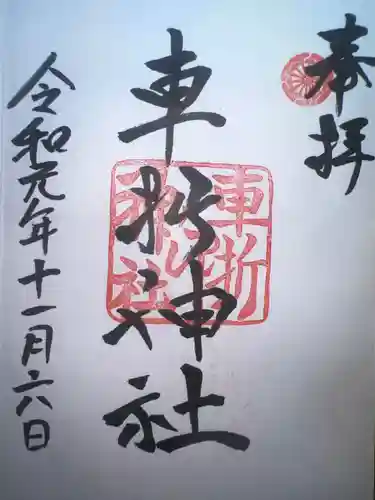 奉拝
車折神社
令和元年十一月六日
車折
神社